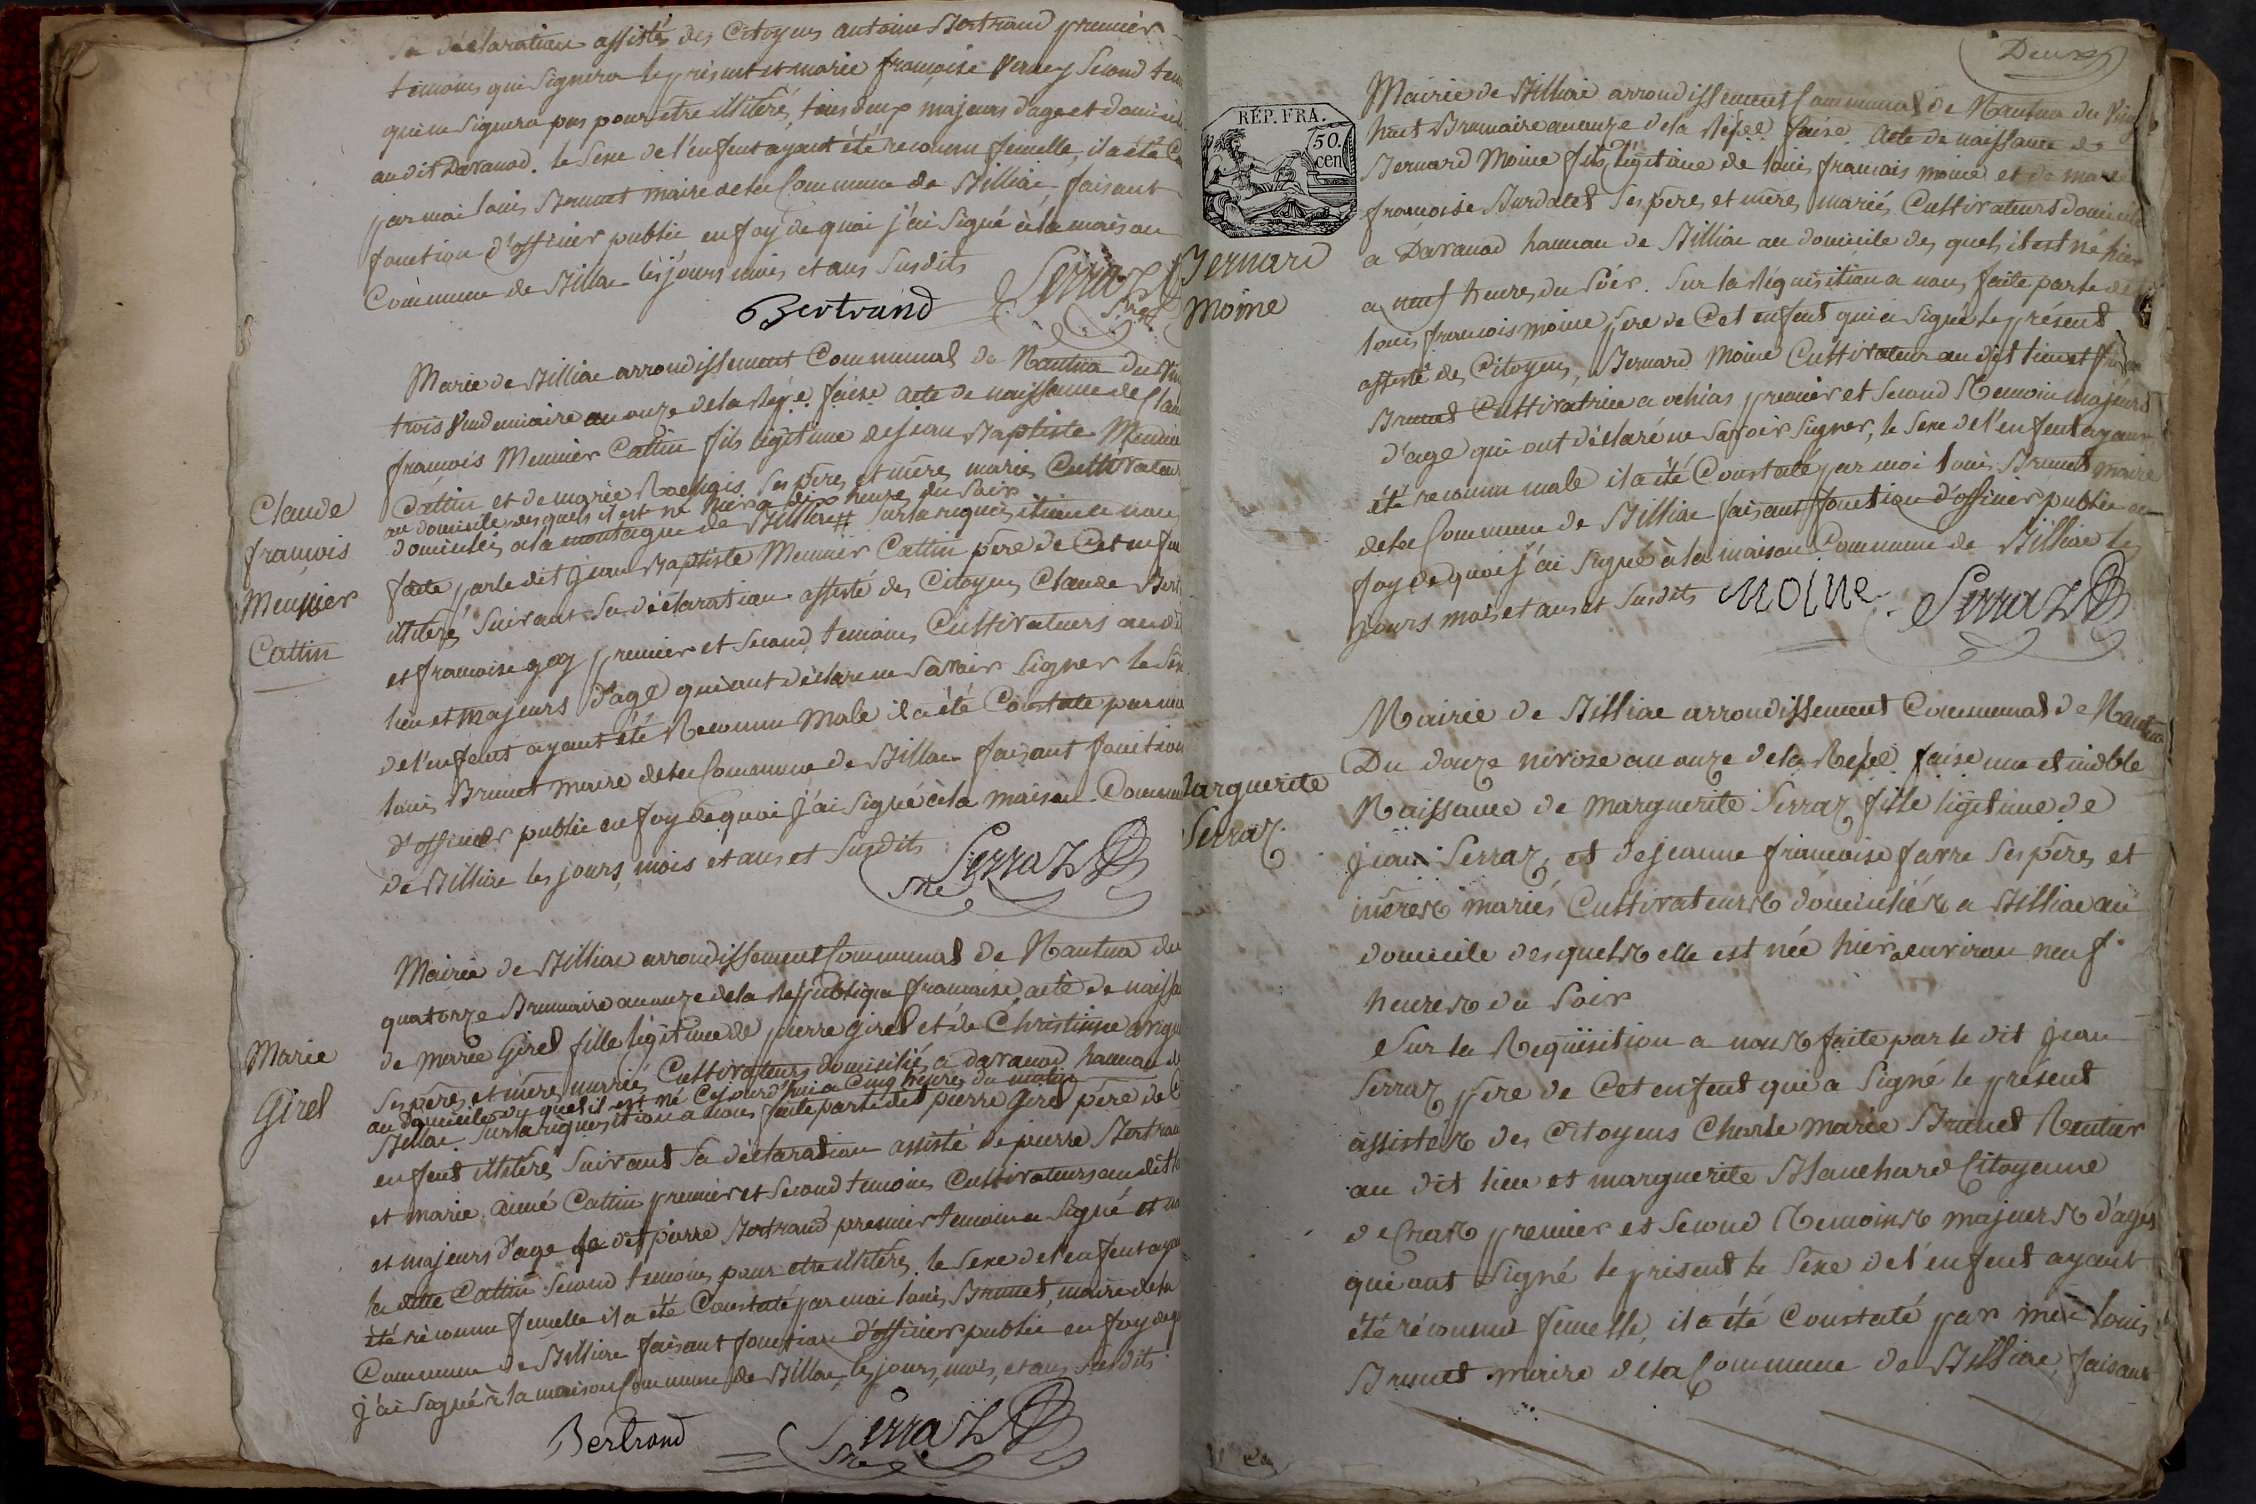 Sa déclaration assistés des Citoyens antoine Bertrand premier
temoins qui Signera le présent et marie françoise Verney Second tem
qui ne Signera pas pour être illiteré, tous deux majeurs d'age et domicil
au dit Davanod. le Sexe de l'enfent ayant été reconnu femelle, il a été Co
par moi Louis Brunet maire de la Commune de Billiac faisant
fonction d'officier public en foy de quoi j'ai Signé à la maison
Commune de Billiac les jours mois et ans Susdits
Bertrand Serraz
Sre
Mairie de Billiac arrondissement Communal de Nantua du Vin
trois Vendemiaire an onze de la Rép.e faise acte de naissance de Clau
françois Meunier Cattin fils légitime de jean Baptiste Meunie
Claude
françois
Meunier
Cattin
Cattin et de marie Rochais Ses pères et mère mariés Cultivateur
au domicile desquels il est né hier a dix heures du Soir
domiciliés a la montagne de Billiac # Sur la requisition a nous
faite par le dit Jean Baptiste Meunier Cattin père de Cet enfen
illiteré Suivant Sa déclaration assisté des Citoyens Claude Bert
et françoise goy premier et Second temoins Cultivateurs au dit
lieu et majeurs d'age qui ont déclaré ne Savoir Signer le Sexe
de l'enfent ayant été Reconnu Male il a été Constaté par moi
Louis Brunet maire de la Commune de Billiac faisant fonction
d'officier public en foy de quoi j'ai Signé à la maison Commun
de Billiac les jours, mois et ans et Susdits
Serraz
Sre
Mairie de Billiac arrondissement Communal de Nantua du
quatorze Brumaire an onze de la République francaise, acte de naissa
Marie
Girel
de Marie Girel fille légitime de pierre Girel et de Christinne
Ses pères et mère mariés Cultivateurs domiciliés a davanod hamau de
au domicile des quels il est né Cejourd'hui a Cinq heures du matin
Billiac Sur la requisition a nous faite par le dit pierre Girel père de C
enfent illiteré Suivant Sa déclaration assisté de pierre Bertran
et marie aimé Cattin premier et Second temoins Cultivateurs au dit l
et majeurs d'age le dit pierre Bertrand premier temoin a Signé et no
la ditte Cattin Second temoins pour etre illiteré. le Sexe de l'enfent aya
été reconnu femelle il a été Constaté par moi Louis Brunet, maire de la
Commune de Billiac faisant fonction d'officier public en foy de q
j'ai Signé à la maison Commune de Billiac les jours, mois, et ans Susdits
Bertrand Serraz
Sre
Deux
RÉP. FRA.
50.
cen
Mairie de Billiac arrondissement Communal de Nantua du Vin
huit Brumaire an onze de la Répe. faise. acte de naissance de
Bernard Moine fils légitime de Louis francais moine et de marie
françoise Burdalet Ses pères et mères mariés Cultivateurs domicilié
a Davanod hamau de Billiac au domicile des quels il est né hier
Bernard
Moine
a neuf heures du Soir. Sur la Réquisition a nous faite par le dit
Louis francois moine père de Cet enfent qui a Signé le présent
assisté des Citoyens, Bernard Moine Cultivateur au dit lieu et
Brunet Cultivatrice a ochias premier et Second Temoin majeurs
d'age qui ont déclaré ne Savoir Signer, le Sexe de l'enfent ayant
été reconnu male il a été Constaté par moi Louis Brunet maire
de la Commune de Billiac faisant fonction d'officier public en
foy de quoi j'ai Signé à la maison Commune de Billiac les
jours mois et ans et Susdits Moine Serraz
Mairie de Billiac arrondissement Communal de Nantua
Du douze nivose an onze de la Répe. faise une et indble
Marguerite
Serraz
Naissance de Marguerite Serraz fille légitime de
jean Serraz et de jeanne francoise favre Ses pères et
mères mariés Cultivateurs domiciliés a Billiac au
domicile desquels elle est née hier a environ neuf
heures du Soir
Sur la Requisition a nous faite par le dit jean
Serraz père de Cet enfent qui a Signé le présent
assistes des Citoyens Charle Marie Brunet Rentier
au dit lieu et marguerite Blanchard Citoyenne
de Craz premier et Second Temoins majuers d'ages
qui ont Signé le présent le Sexe de l'enfent ayant
été reconnu femelle, il a été Constaté par moi Louis
Brunet maire de la Commune de Billiac, faisant